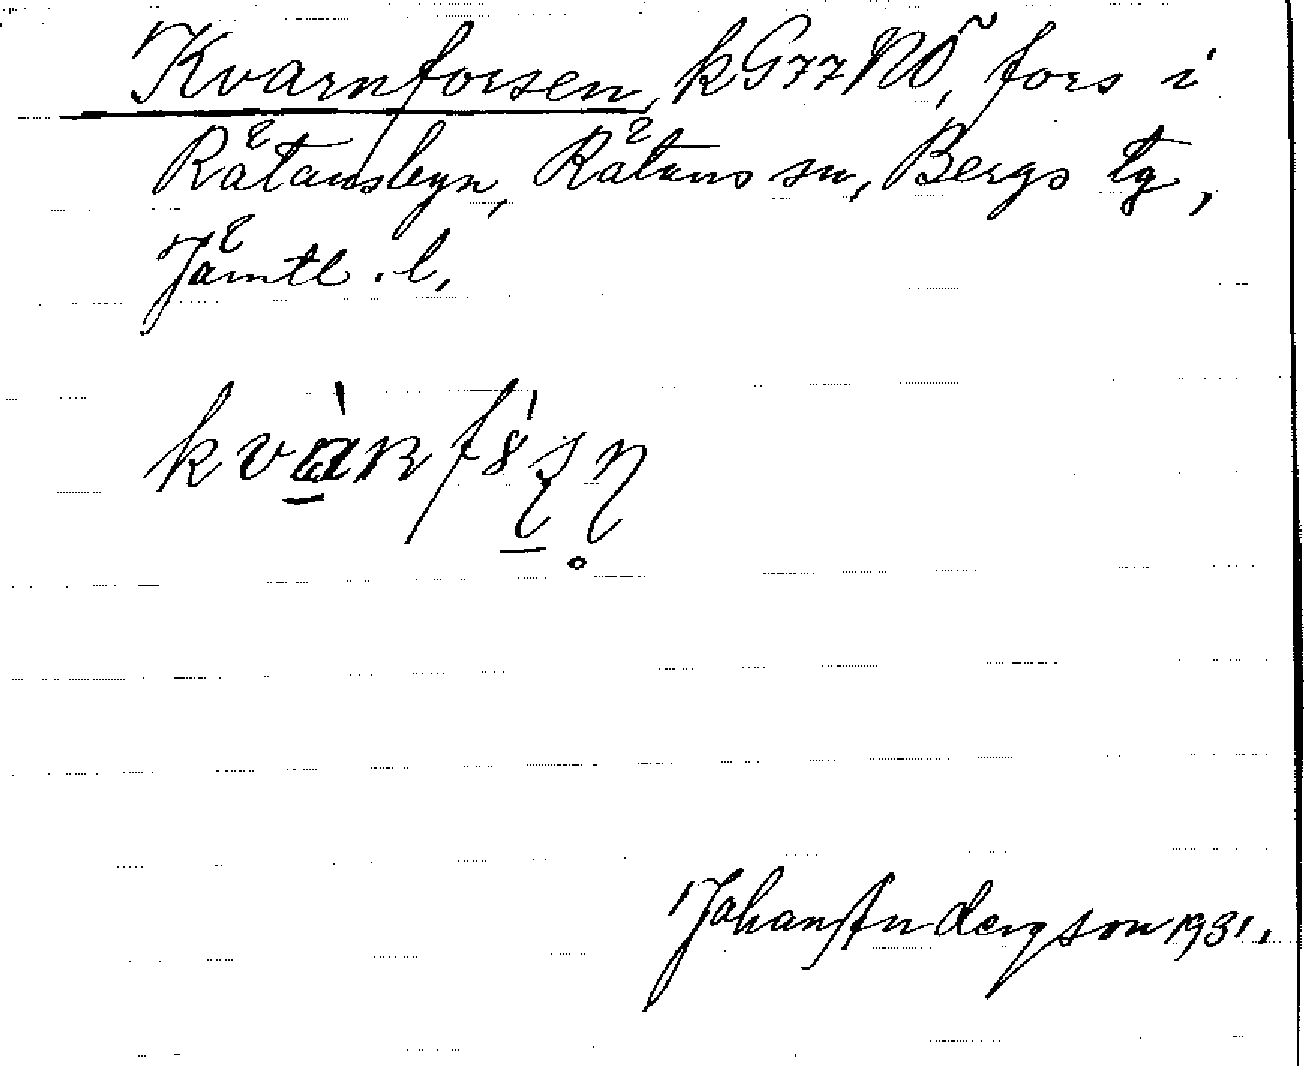 Kvarnforsen, kG77NÖ, fors i
Rätansbyn, Rätans sn, Bergs tg,
Jämtl. l.
Johan Andersson 1931.